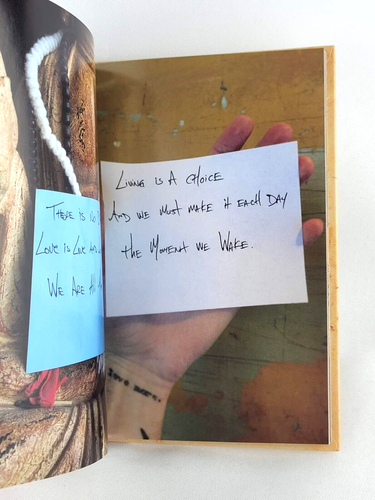 There is no
Love is Love
We Are All
Living is A choice
And we must make it each Day
the Moment we Wake.